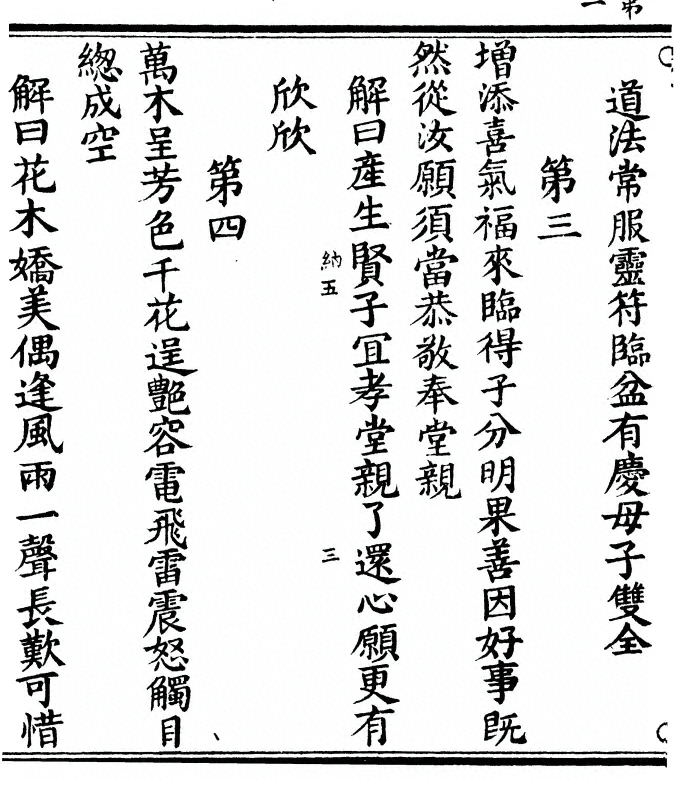 道法常服靈符臨盆有慶母子雙全
第三
增添喜氣福來臨得子分明果善因好事既
然從汝願須當恭敬奉堂親
解曰產生賢子宜孝堂親了還心願更有
納五
三
欣欣
第四
萬木呈芳色千花逞艷容電飛雷震怒觸目
緫成空
解曰花木嬌美偶逢風雨一聲長歎可惜